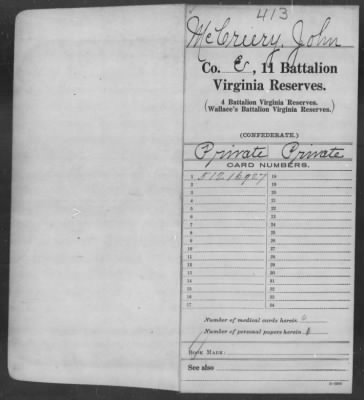 413
McCriery, John
Co. E, 11 Battalion
Virginia Reserves.
(4 Battalion Virginia Reserves.
Wallace's Battalion Virginia Reserves.)
(CONFEDERATE.)
Private Private
CARD NUMBERS.
1 51216927 18
2 19
3 20
4 21
5 22
6 23
7 24
8 25
9 26
10 27
11 28
12 29
13 30
14 31
15 32
16 33
17 34
Number of medical cards herein 0
Number of personal papers herein 0
BOOK MARK:
See also